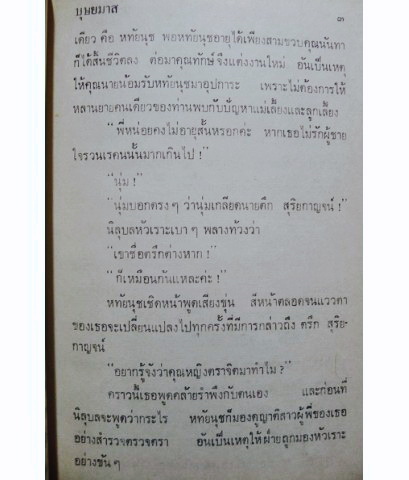 บุษยมาส
๓
เดียว คือ หทัยนุช พอหทัยนุชอายุได้เพียงสามขวบคุณนันทา
ก็ได้สิ้นชีวิตลง ต่อมาคุณทักษ์จึงแต่งงานใหม่ อันเป็นเหตุ
ให้คุณนายน้อมรับหทัยนุชมาอุปการะ เพราะไม่ต้องการให้
หลานยายคนเดียวของท่านพบกับปัญหาแม่เลี้ยงและลูกเลี้ยง
"พี่หน่อยคงไม่อายุสั้นหรอกค่ะ หากเธอไม่รักผู้ชาย
ใจรวนเรคนนั้นมากเกินไป !"
"นุ่ม !"
"นุ่มบอกตรง ๆ ว่านุ่มเกลียดนายตึก สุริยกาญจน์ !"
นิลุบลหัวเราะเบา ๆ พลางท้วงว่า
"เขาชื่อตรึกต่างหาก !"
"ก็เหมือนกันแหละค่ะ !"
หทัยนุชเชิดหน้าพูดเสียงขุ่น สีหน้าตลอดจนแววตา
ของเธอจะเปลี่ยนแปลงไปทุกครั้งที่มีการกล่าวถึง ตรึก สุริย-
กาญจน์
"อยากรู้จังว่าคุณหญิงตราจิตมาทำไม ?"
คราวนี้เธอพูดคล้ายรำพึงกับตนเอง และก่อนที่
นิลุบลจะพูดว่ากระไร หทัยนุชก็มองดูญาติสาวผู้พี่ของเธอ
อย่างสำรวจตรวจตรา อันเป็นเหตุให้ฝ่ายถูกมองหัวเราะ
อย่างขัน ๆ